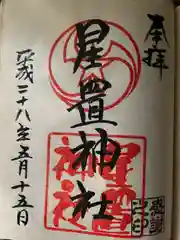 奉拝
星置神社
星置
神社
平成二十八年五月十五日
感謝